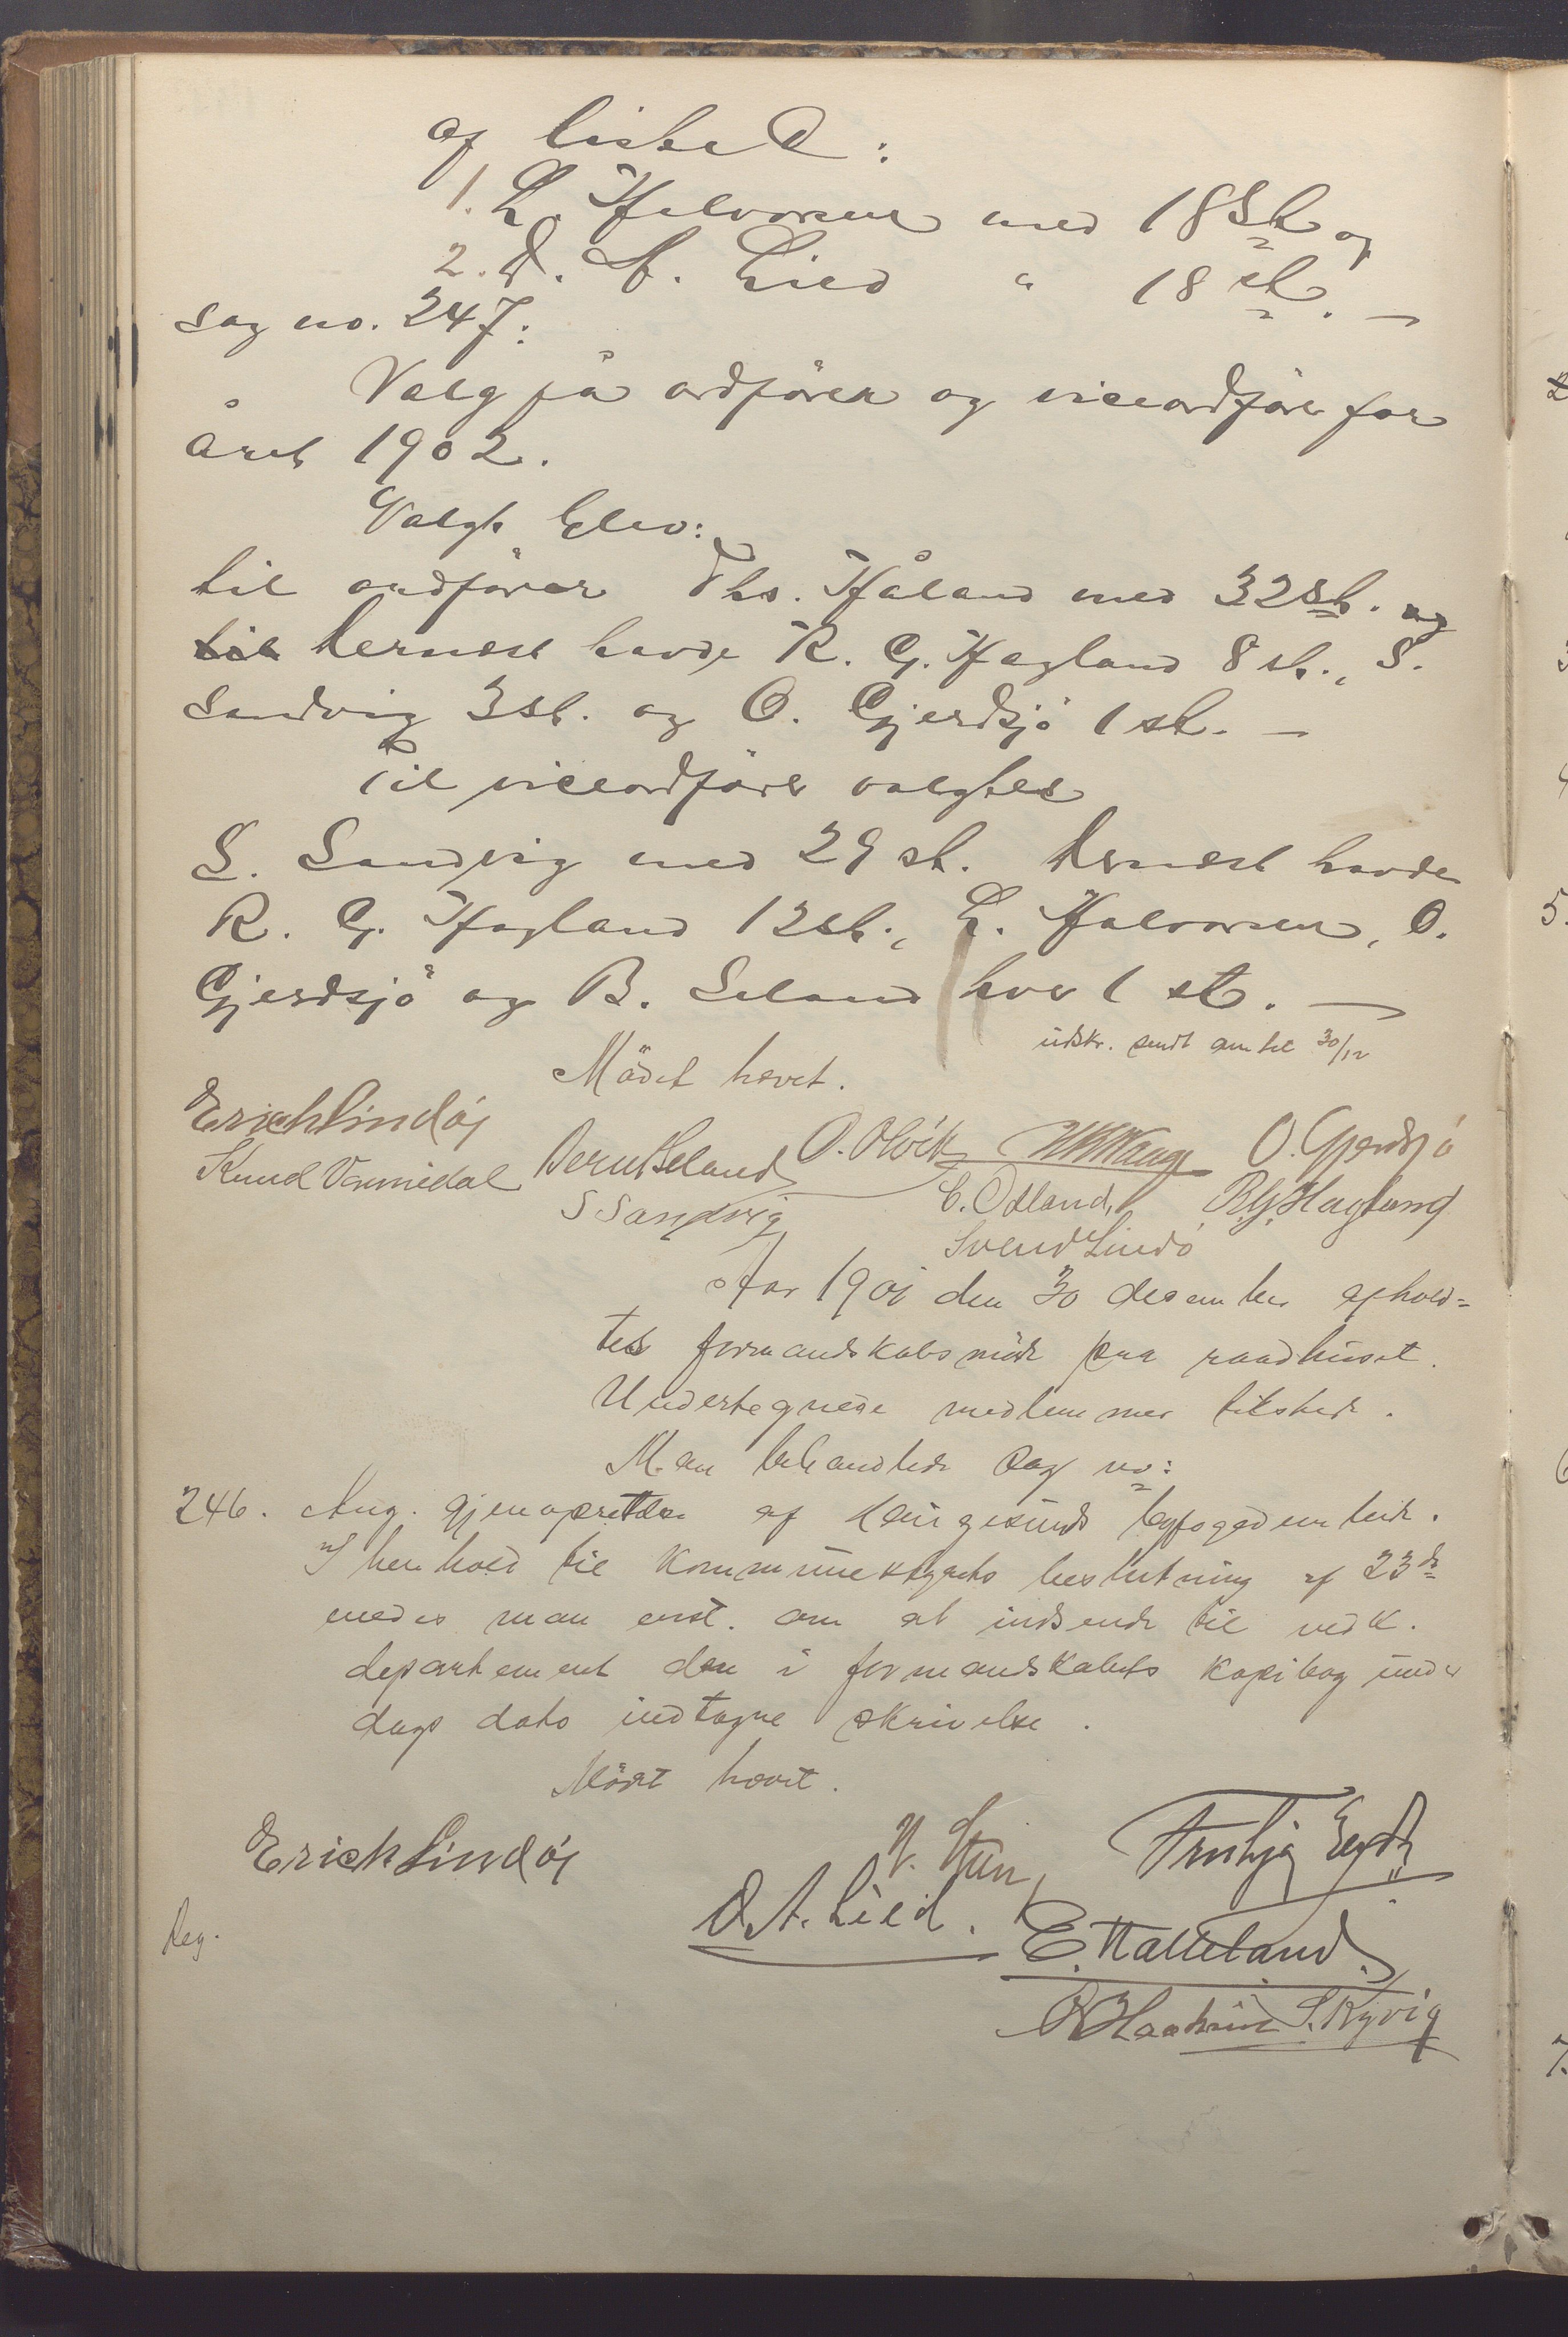 af liste D:
1. L. Halvorsen med 18 St. og
2. O. A. Lied " 18 st. —
Sag no. 247:
Valg på ordfører og viceordfører for
året 1902.
Valgt blev:
til ordfører Ths. Håland med 32 st. og
til Dernæst havde R. G. Hagland 8 st., S.
Sandvig 3 st. og O. Gjerdsjø 1 st. —
Til viceordfører valgtes
S. Sandvig med 29 st. Dernæst havde
R. G. Hagland 12 st., L. Halvorsen, O.
Gjerdsjø og B. Seland hver 1 st. —
udskr. sendt amtet 30/12
Mødet hævet.
Erich Lindøy
Knud Vormedal Bernt Seland O. Olvik O. Gjerdsjø
S Sandvig E. Ødland, R. G. Hagland
Svend Lindø
Aar 1901 den 30 desember afhold=
tes formandskabsmøde paa raadhuset.
Undertegnede medlemmer tilstede.
Man behandlede Sag no:
246. Ang. gjenoprettelse af Haugesunds byfogedembede.
I henhold til kommunestyrets beslutning af 23de
enedes man enst. om at indsende til vedk.
departement den i formandskabets kopibog under
dags dato indtagne skrivelse.
Mødet hævet.
Erich Lindøy
O. A. Lied.
E. Halleland
S. Kyvig
Reg.